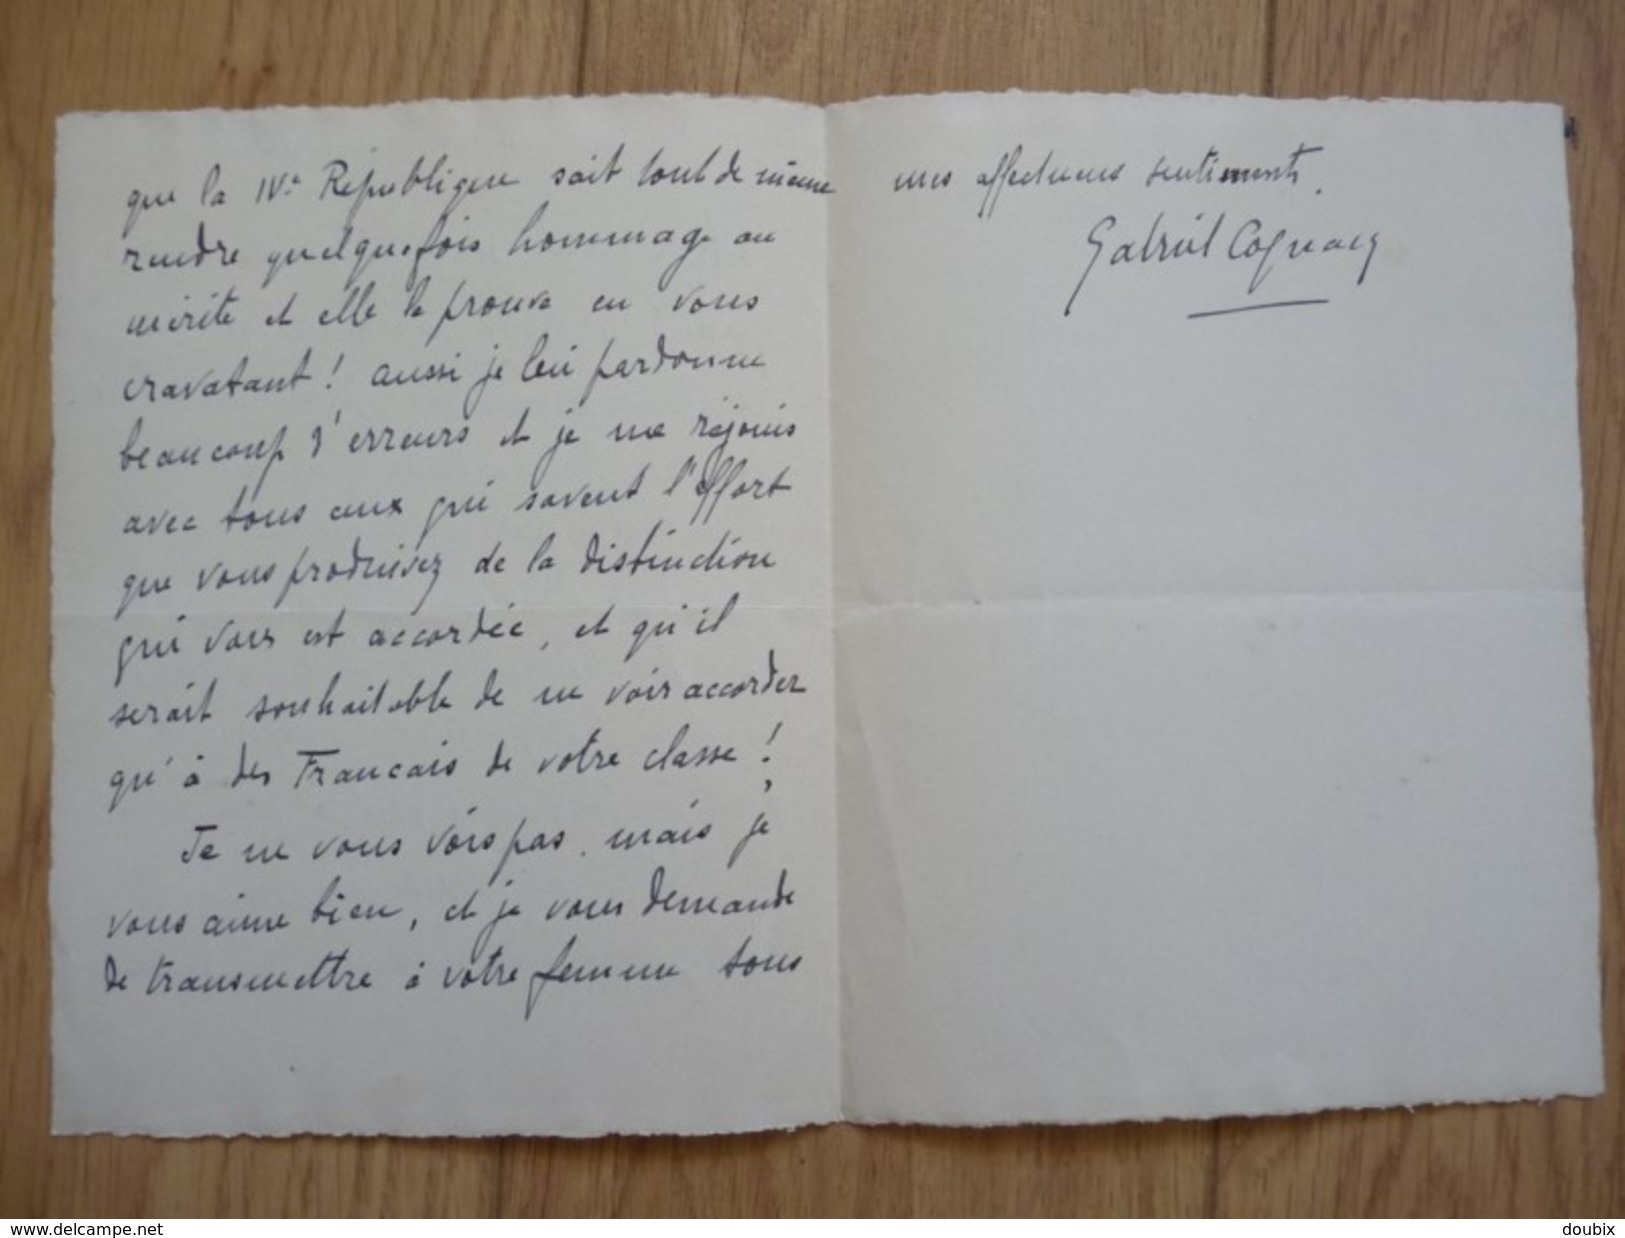 que la IVe République sait tout de même
rendre quelquefois hommage au
mérite et elle le prouve en vous
cravatant ! aussi je lui pardonne
beaucoup d'erreurs et je me réjouis
avec tous ceux qui savent l'effort
que vous produisez de la distinction
qui vous est accordée, et qu'il
serait souhaitable de ne voir accorder
qu'à des Francais de votre classe !
Je ne vous vois pas, mais je
vous aime bien, et je vous demande
de transmettre à votre femme tous
mes affectueux sentiments.
Gabriel Cognacq
www.delcampe.net
doubix